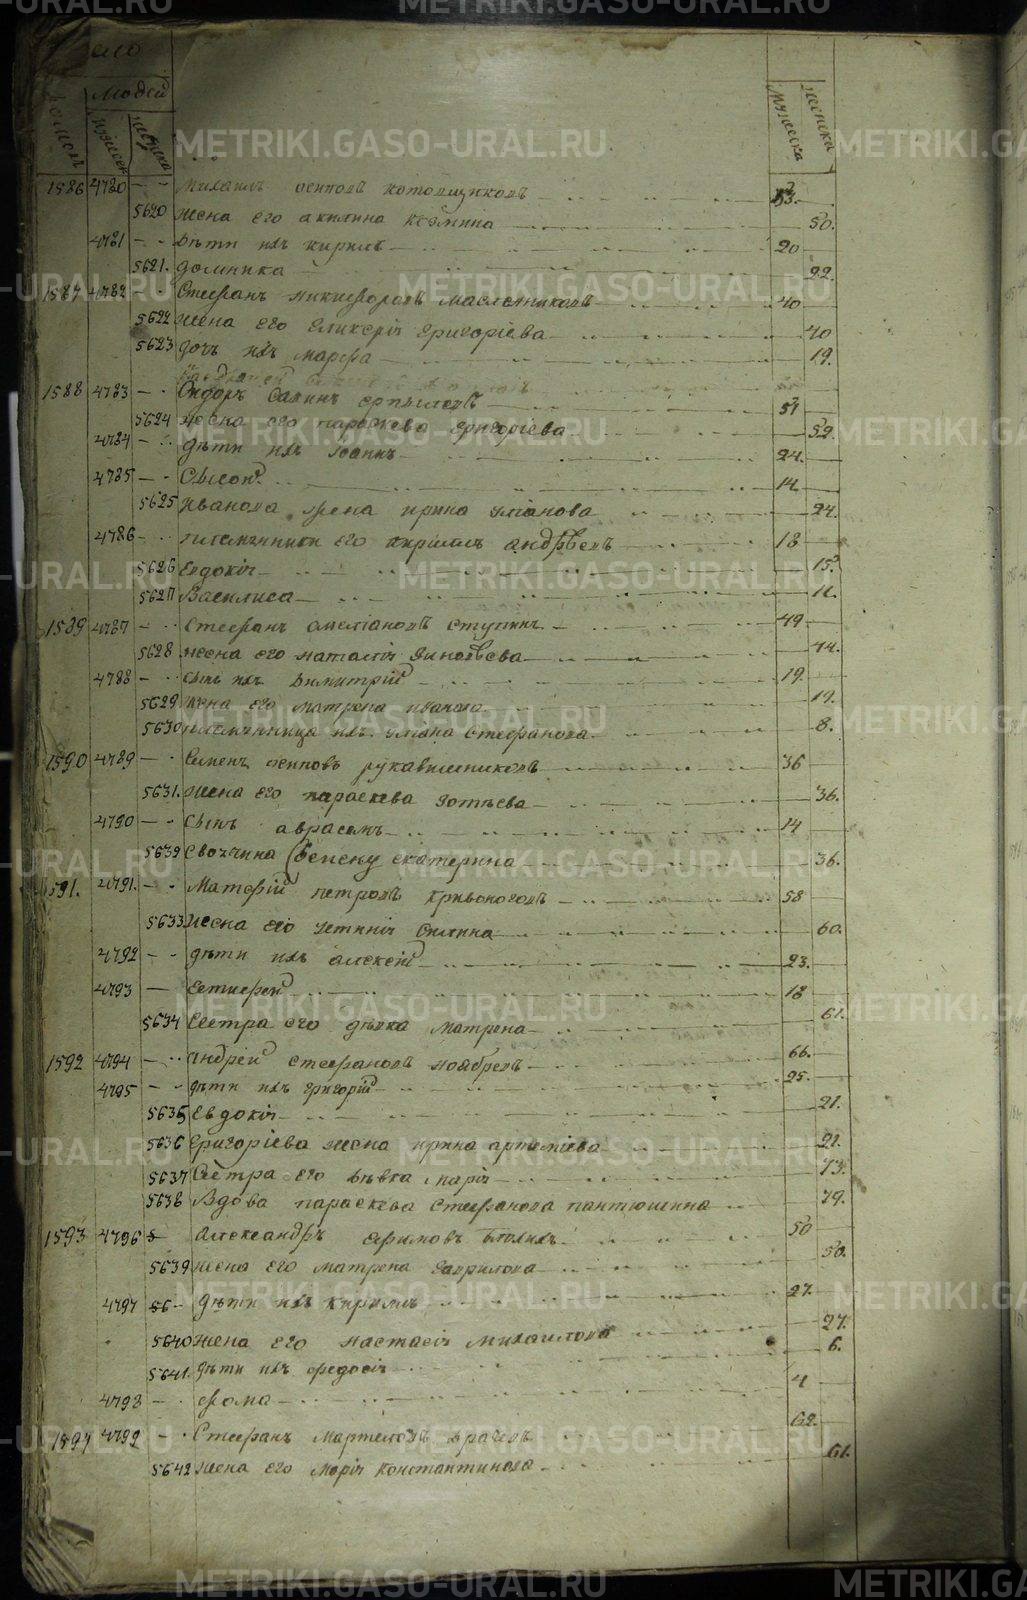 METRIKI.GASO-URAL.RU
Людей
мужеска
женска
1586 4780 Михаилъ осиповъ котовщиковъ 53.
5620 жена его акилина козмина 50.
4781 дѣти ихъ кирилъ 20
5621. домника 22.
1587 4782 Стефанъ никифоровъ масленниковъ 40
5622 жена его Гликерія григоріева 40
5623 дочь ихъ марѳа 19.
1588 4783 Сидоръ 51
5624 жена его параскева григоріева 52.
4784 дѣти ихъ Іоаннъ 24.
4785 Сысой 14
5625 Иванова жена ирина уліанова 24.
4786 племянники его кириллъ андрѣевъ 18
5626 Евдокія 15.
5627 Василиса 11.
1589 4787 Стефанъ омеліановъ ступинъ 49
5628 жена его наталія зиновьева 44.
4788 сынъ ихъ димитрій 19
5629 жена его матрена иванова 19.
5630 племянница ихъ уліана стефанова 8.
1590 4789 Семенъ осиповъ рукавишниковъ 36
5631. жена его параскева фотіева 36.
4790 сынъ аврамъ 14
5632 своячина Семену екатерина 36.
1591. 4791. Матфій петровъ кривоноговъ 58
5633 жена его устинія силина 60.
4792 дѣти ихъ алексій 23.
4793 Евтифей 18
5634 Сестра его дѣвка матрена 61.
1592 4794 андрей стефановъ ноябревъ 66.
4795 дѣти ихъ григорій 25.
5635 Евдокія 21.
5636 Григоріева жена ирина артеміева 21.
5637 Сестра его дѣвка марія 73.
5638 Вдова параскева стефанова пантюшина 79.
1593 4796 александръ ефимовъ блохинъ 50
5639 жена его матрена гаврилова 50.
4797 дѣти ихъ кирилъ 27.
5640 жена его настасія михаилова 27.
5641. дѣти ихъ федосія 6.
4798 фома 4
1594 4799 Стефанъ мартемовъ драчевъ 62.
5642 жена его марія константинова 61.